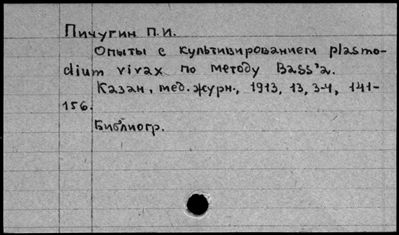 Пичугин П.И.
Опыты с культивированием plasmo-
dium vivax по методу Bass'a.
Казан. мед. журн., 1913, 13, 3-4, 141-
156.
Библиогр.